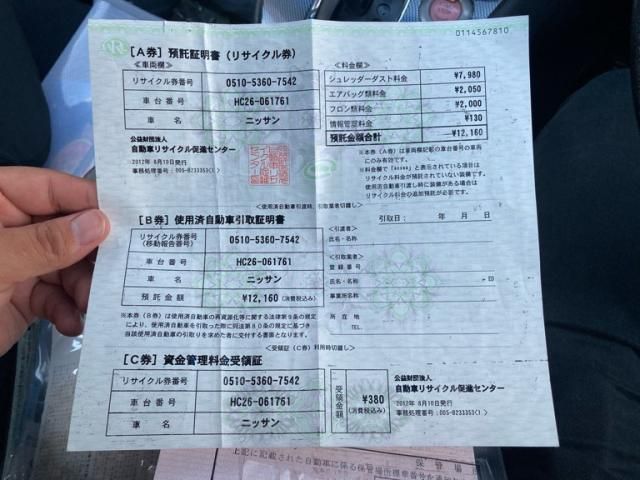 0114567810
[A券] 預託証明書 (リサイクル券)
≪車両欄≫
リサイクル券番号 0510-5360-7542
車台番号 HC26-061761
車 名 ニッサン
公益財団法人
自動車リサイクル促進センター
2012年 8月10日発行
事務処理番号:005-B233353(1 )
≪料金欄≫
シュレッダーダスト料金 ¥7,980
エアバッグ類料金 ¥2,050
フロン類料金 ¥2,000
情報管理料金 ¥130
預託金額合計 ¥12,160
※本券(A券)は車両欄記載の車台番号の車両
にのみ有効です。
※料金欄で「*****」と表示されている場合は
リサイクル料金が預託されていない装備です。
使用済自動車引渡し時に装備がある場合は
リサイクル料金の追加預託が必要です。
<使用済自動車引渡時、引取業者切離し>
[B券] 使用済自動車引取証明書
リサイクル券番号
(移動報告番号) 0510-5360-7542
車台番号 HC26-061761
車 名 ニッサン
預託金額 ¥12,160 (消費税込み)
※本券(B券)は使用済自動車の再資源化等に関する法律第9条の規定
により、使用済自動車を引取った際に同法第80条の規定に基づき
当該使用済自動車の引取りを求めた者に交付する書面となります。
引取日: 年 月 日
<引渡者>
氏名・名称
<引取業者>
登録番号
氏名・名称 印
事業所名称
所在地
TEL.
<受領証(C券)利用時切離し>
[C券] 資金管理料金受領証
リサイクル券番号 0510-5360-7542
車台番号 HC26-061761
車 名 ニッサン
受領金額 ¥380
(消費税込み)
公益財団法人
自動車リサイクル促進センター
2012年 8月10日発行
事務処理番号:005-B233353(1 )
上記に記載された自動車に係る保管場所標章番号を通知